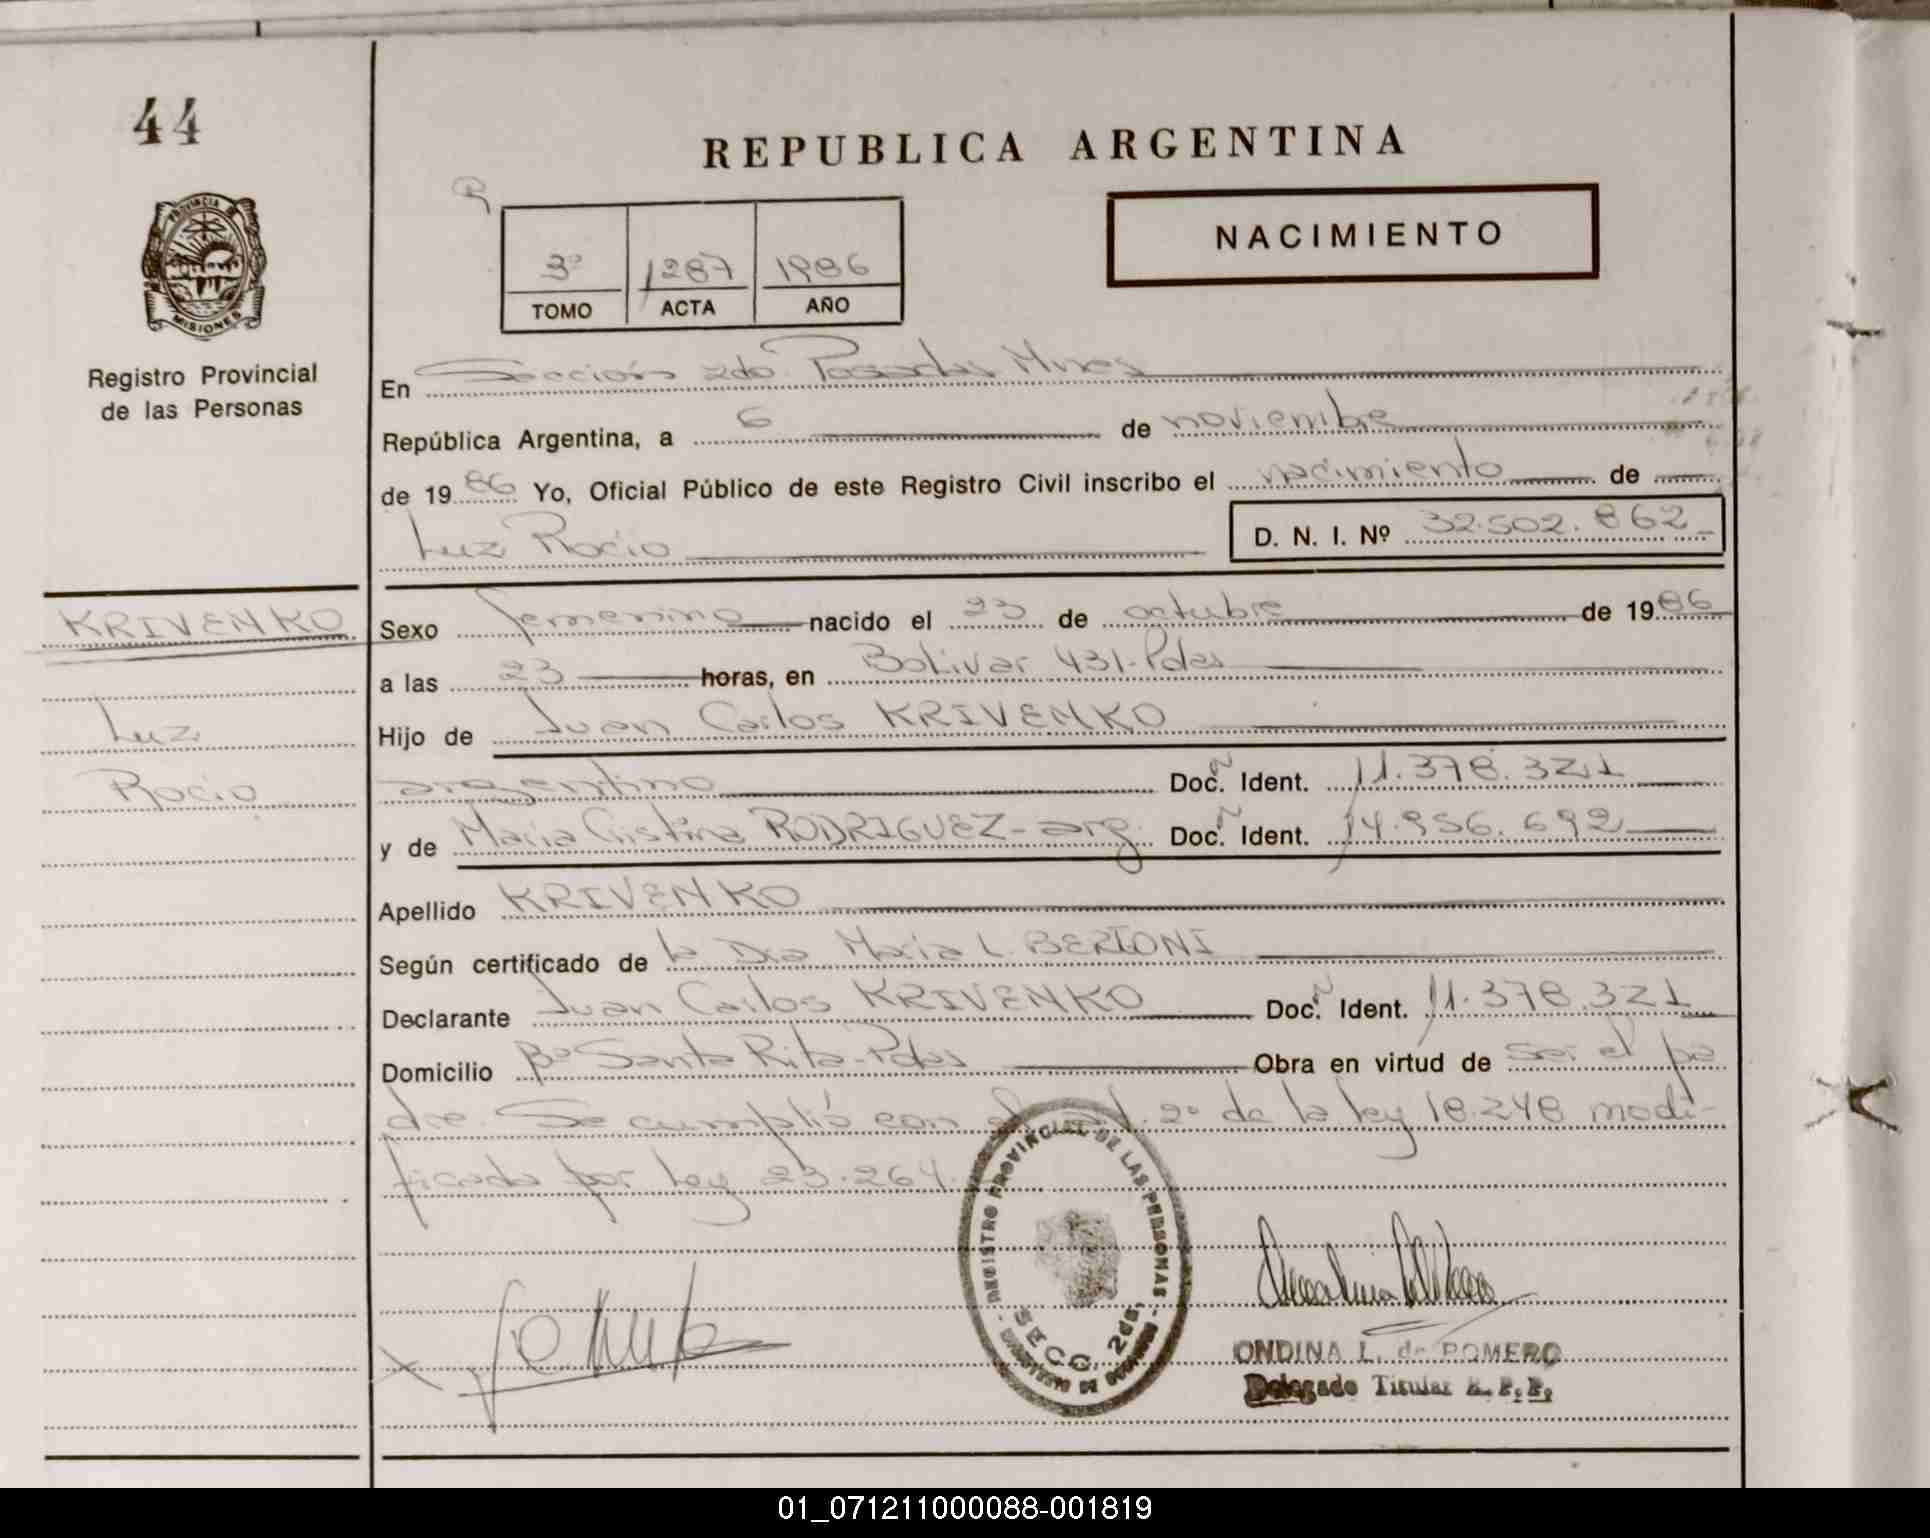 44
REPUBLICA ARGENTINA
NACIMIENTO
3º 1287 1986
TOMO ACTA AÑO
PROVINCIA DE
MISIONES
Registro Provincial
de las Personas
En Sección 2da. Posadas Mnes
República Argentina, a 6 de noviembre
de 1986 Yo, Oficial Público de este Registro Civil inscribo el nacimiento de
Luz Rocio D. N. I. Nº 32.502.862
KRIVENKO
Luz
Rocio
Sexo femenino nacido el 23 de octubre de 1986
a las 23 horas, en Bolivar 431-Pdas
Hijo de Juan Carlos KRIVENKO
argentino Doc. Ident. 11.378.321
y de Maria Cristina RODRIGUEZ-arg. Doc. Ident. 14.956.692
Apellido KRIVENKO
Según certificado de la Dra Maria L. BERTONI
Declarante Juan Carlos KRIVENKO Doc. Ident. 11.378.321
Domicilio Bº Santa Rita-Pdas Obra en virtud de ser el pa
dre. Se cumplió con el art. 2º de la ley 18.248 modi-
ficada por ley 23.264.
REGISTRO PROVINCIAL DE LAS PERSONAS
SECC. 2da.
MINISTERIO DE GOBIERNO
ONDINA L. de ROMERO
Delegado Titular R. P. P.
01_071211000088-001819